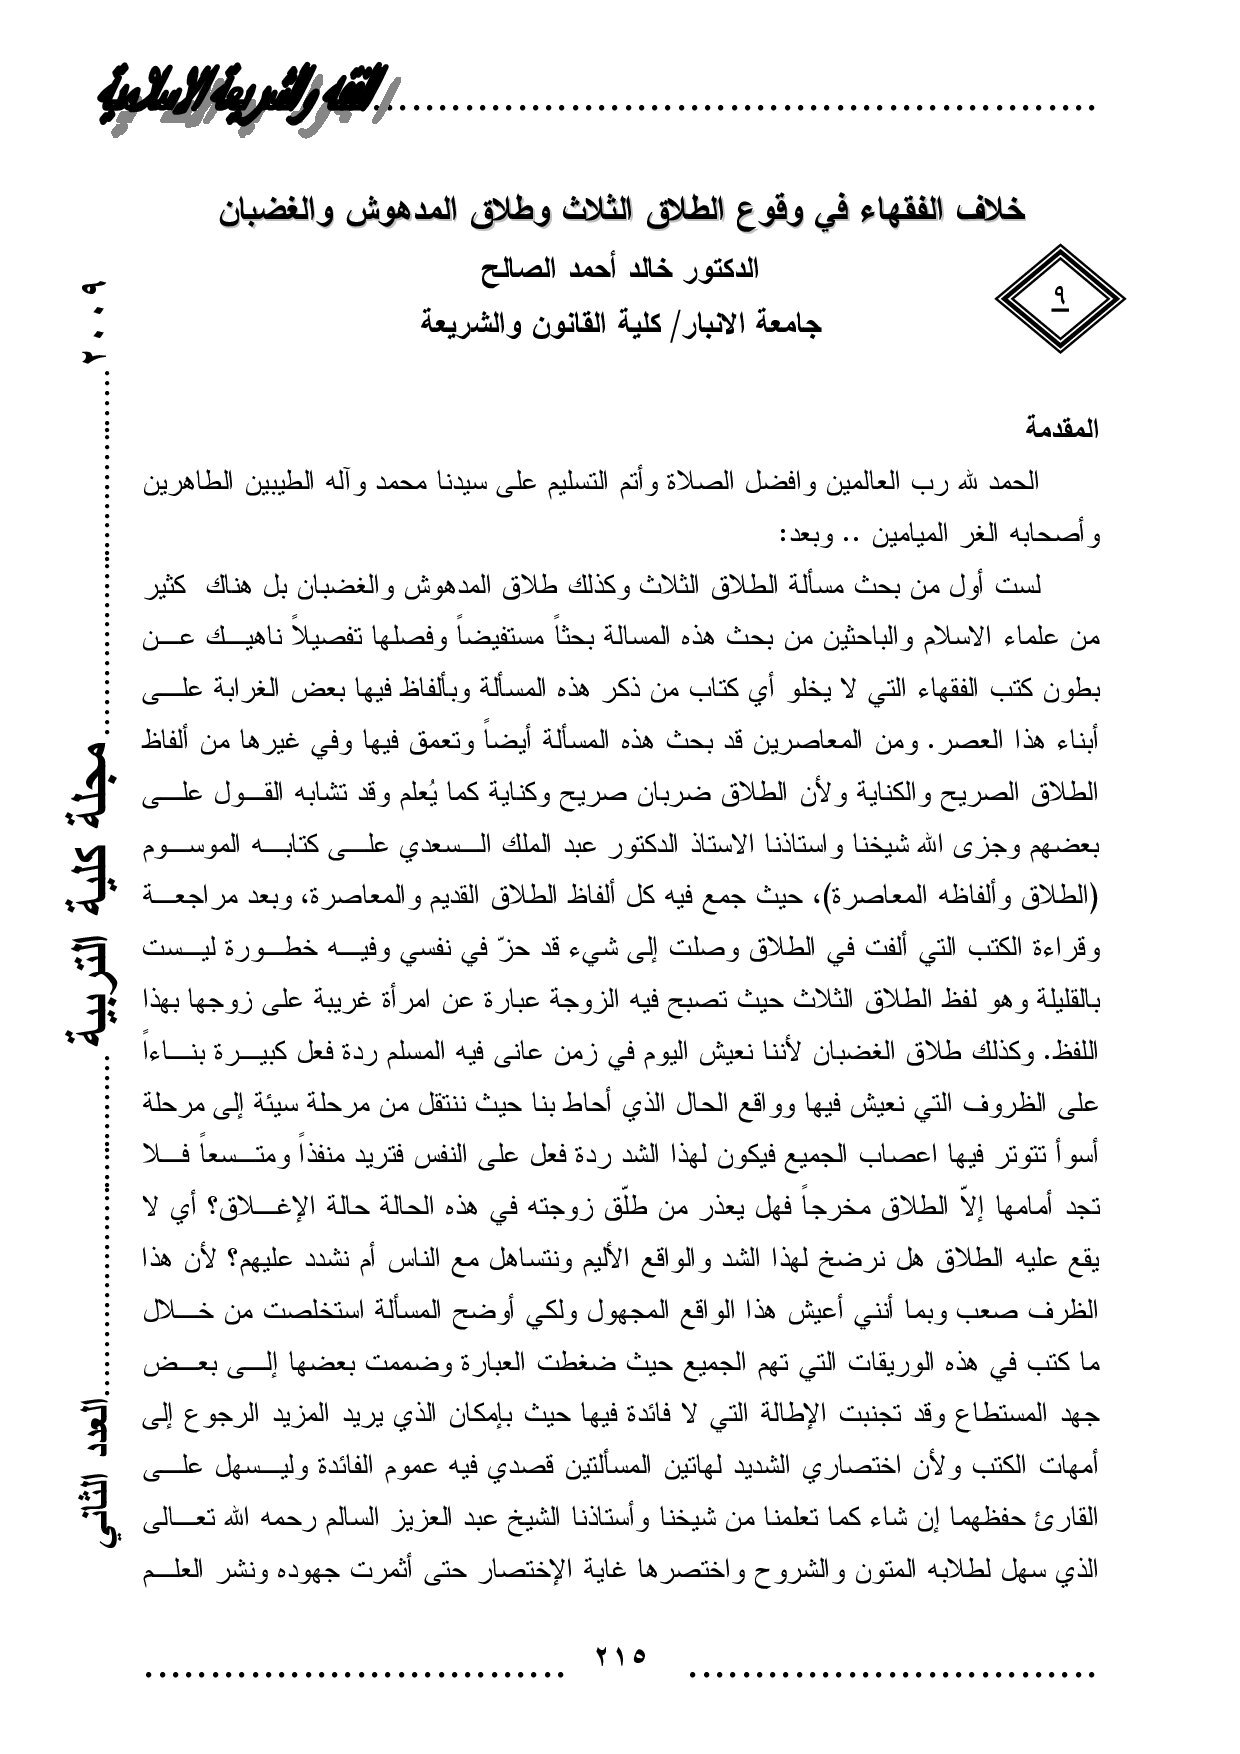 الفقه والشريعة الاسلامية
خلاف الفقهاء في وقوع الطلاق الثلاث وطلاق المدهوش والغضبان
الدكتور خالد أحمد الصالح
جامعة الانبار/ كلية القانون والشريعة
٩
المقدمة
الحمد لله رب العالمين وافضل الصلاة وأتم التسليم على سيدنا محمد وآله الطيبين الطاهرين
وأصحابه الغر الميامين .. وبعد:
لست أول من بحث مسألة الطلاق الثلاث وكذلك طلاق المدهوش والغضبان بل هناك كثير
من علماء الاسلام والباحثين من بحث هذه المسالة بحثاً مستفيضاً وفصلها تفصيلاً ناهيك عن
بطون كتب الفقهاء التي لا يخلو أي كتاب من ذكر هذه المسألة وبألفاظ فيها بعض الغرابة على
أبناء هذا العصر. ومن المعاصرين قد بحث هذه المسألة أيضاً وتعمق فيها وفي غيرها من ألفاظ
الطلاق الصريح والكناية ولأن الطلاق ضربان صريح وكناية كما يُعلم وقد تشابه القول على
بعضهم وجزى الله شيخنا واستاذنا الاستاذ الدكتور عبد الملك السعدي على كتابه الموسوم
(الطلاق وألفاظه المعاصرة)، حيث جمع فيه كل ألفاظ الطلاق القديم والمعاصرة، وبعد مراجعة
وقراءة الكتب التي ألفت في الطلاق وصلت إلى شيء قد حزّ في نفسي وفيه خطورة ليست
بالقليلة وهو لفظ الطلاق الثلاث حيث تصبح فيه الزوجة عبارة عن امرأة غريبة على زوجها بهذا
اللفظ. وكذلك طلاق الغضبان لأننا نعيش اليوم في زمن عانى فيه المسلم ردة فعل كبيرة بناءاً
على الظروف التي نعيش فيها وواقع الحال الذي أحاط بنا حيث ننتقل من مرحلة سيئة إلى مرحلة
أسوأ تتوتر فيها اعصاب الجميع فيكون لهذا الشد ردة فعل على النفس فتريد منفذاً ومتسعاً فلا
تجد أمامها إلاّ الطلاق مخرجاً فهل يعذر من طلّق زوجته في هذه الحالة حالة الإغلاق؟ أي لا
يقع عليه الطلاق هل نرضخ لهذا الشد والواقع الأليم ونتساهل مع الناس أم نشدد عليهم؟ لأن هذا
الظرف صعب وبما أنني أعيش هذا الواقع المجهول ولكي أوضح المسألة استخلصت من خلال
ما كتب في هذه الوريقات التي تهم الجميع حيث ضغطت العبارة وضممت بعضها إلى بعض
جهد المستطاع وقد تجنبت الإطالة التي لا فائدة فيها حيث بإمكان الذي يريد المزيد الرجوع إلى
أمهات الكتب ولأن اختصاري الشديد لهاتين المسألتين قصدي فيه عموم الفائدة وليسهل على
القارئ حفظهما إن شاء كما تعلمنا من شيخنا وأستاذنا الشيخ عبد العزيز السالم رحمه الله تعالى
الذي سهل لطلابه المتون والشروح واختصرها غاية الإختصار حتى أثمرت جهوده ونشر العلم
٢١٥
العدد الثاني ........ مجلة كلية التربية ........ ٢٠٠٩